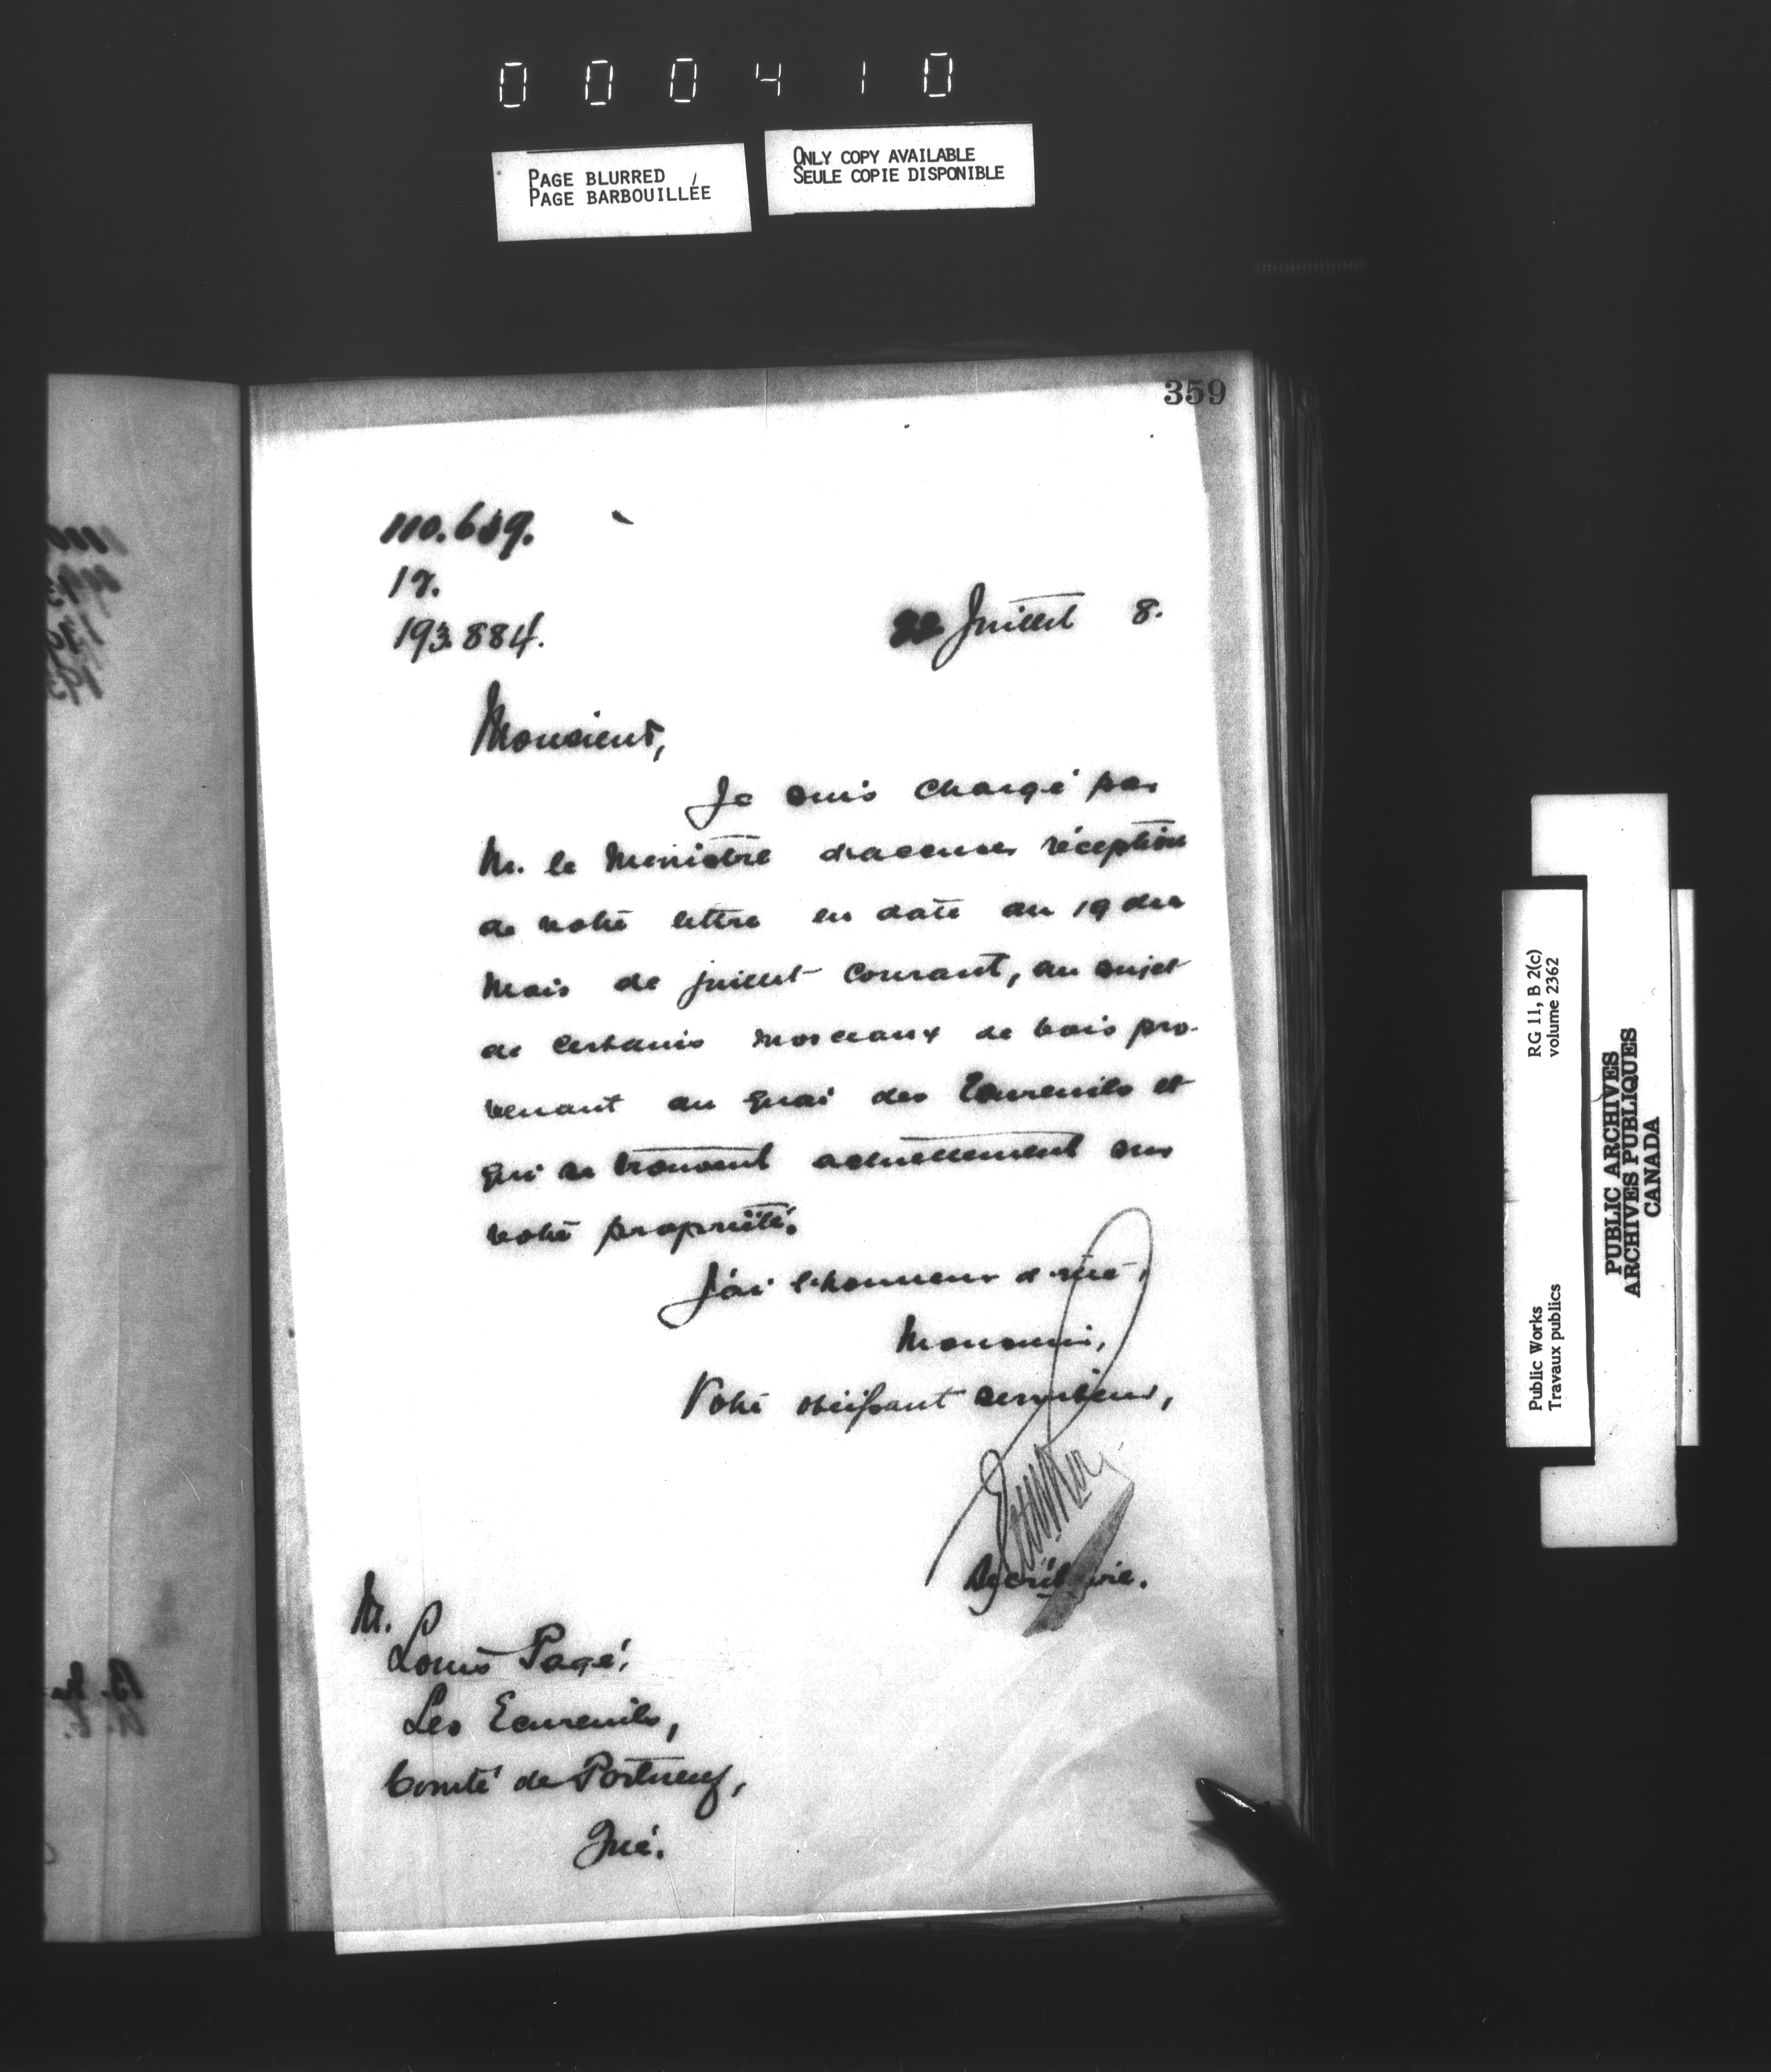 000410
PAGE BLURRED
PAGE BARBOUILLÉE
ONLY COPY AVAILABLE
SEULE COPIE DISPONIBLE
359
17.
193884.
22 Juillet 8.
Monsieur,
Je suis chargé par
M. le Ministre d'accuser réception
de votre lettre en date du 19 du
mois de juillet courant, au sujet
de certains morceaux de bois pro-
venant du quai des Ecureuils et
qui se trouvent actuellement sur
votre propriété.
J'ai l'honneur d'être,
Monsieur,
Votre obéissant serviteur,
Secrétaire.
M.
Louis Pagé,
Les Ecureuils,
Comté de Portneuf,
Qué.
Public Works
Travaux publics
RG 11, B 2(c)
volume 2362
PUBLIC ARCHIVES
ARCHIVES PUBLIQUES
CANADA